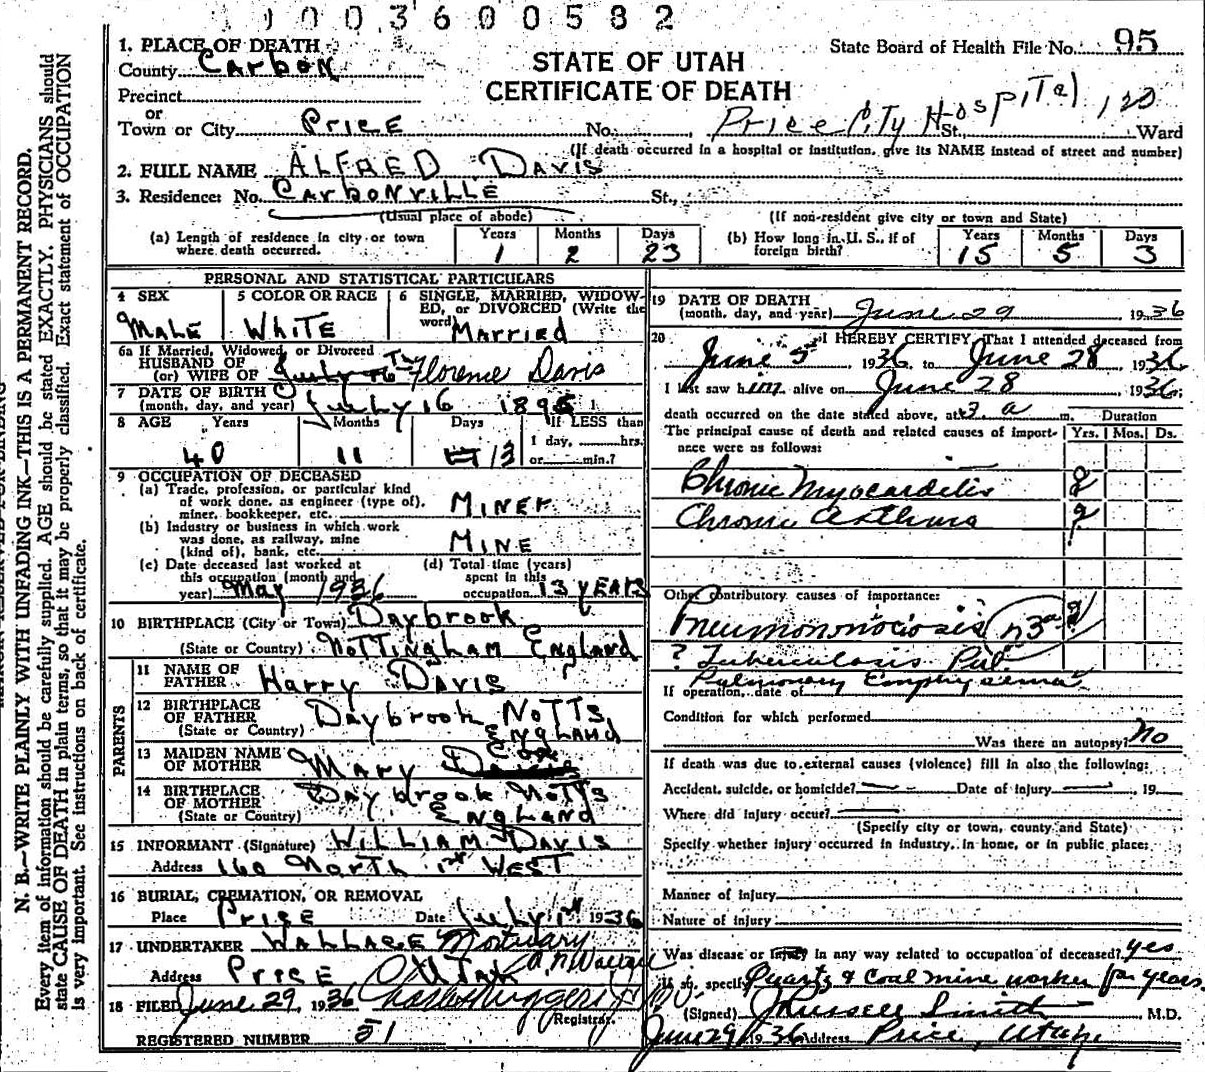 1003600582
1. PLACE OF DEATH
County Carbon
Precinct
or
Town or City Price No. , Price City Hospital St., 120 Ward
STATE OF UTAH
CERTIFICATE OF DEATH
State Board of Health File No. 95
(If death occurred in a hospital or institution, give its NAME instead of street and number)
2. FULL NAME ALFRED DAVIS
3. Residence: No. CARBONVILLE St.,
(Usual place of abode) (If non-resident give city or town and State)
(a) Length of residence in city or town where death occurred. Years 1 Months 2 Days 23
(b) How long in U. S., if of foreign birth? Years 15 Months 5 Days 3
PERSONAL AND STATISTICAL PARTICULARS
4 SEX MALE
5 COLOR OR RACE WHITE
6 SINGLE, MARRIED, WIDOWED, or DIVORCED (Write the word) MARRIED
6a If Married, Widowed, or Divorced
HUSBAND OF
(or) WIFE OF July 16th Florence Davis
7 DATE OF BIRTH
(month, day, and year) July 16 1895
8 AGE Years 40 Months 11 Days 13 If LESS than
1 day, hrs.
or min.?
9 OCCUPATION OF DECEASED
(a) Trade, profession, or particular kind
of work done, as engineer (type of),
miner, bookkeeper, etc. MINER
(b) Industry or business in which work
was done, as railway, mine
(kind of), bank, etc. MINE
(c) Date deceased last worked at
this occupation (month and
year) May 1936
(d) Total time (years)
spent in this
occupation 13 YEARS
10 BIRTHPLACE (City or Town) Daybrook
(State or Country) NOTTINGHAM ENGLAND
PARENTS
11 NAME OF
FATHER Harry DAVIS
12 BIRTHPLACE
OF FATHER Daybrook NOTTS
(State or Country) ENGLAND
13 MAIDEN NAME
OF MOTHER MARY Cox
14 BIRTHPLACE
OF MOTHER Daybrook NOTTS
(State or Country) ENGLAND
15 INFORMANT (Signature) WILLIAM DAVIS
Address 160 North 1st WEST
16 BURIAL, CREMATION, OR REMOVAL
Place PRICE Date July 1st 1936
17 UNDERTAKER WALLACE Mortuary
Address PRICE UTAH
18 FILED June 29, 1936
Registrar.
REGISTERED NUMBER 51
19 DATE OF DEATH
(month, day, and year) June 29 1936
20 I HEREBY CERTIFY, That I attended deceased from
June 5 1936, to June 28 1936.
I last saw him alive on June 28 1936;
death occurred on the date stated above, at 3 a m. Duration
The principal cause of death and related causes of importance were as follows: Yrs. Mos. Ds.
Chronic Myocarditis ?
Chronic Asthma ?
Other contributory causes of importance:
Pneumononociosis n3a ?
? Tuberculosis Pul
Pulmonary Emphysema
If operation, date of
Condition for which performed
Was there an autopsy? No
If death was due to external causes (violence) fill in also the following:
Accident, suicide, or homicide? Date of injury , 19
Where did injury occur?
(Specify city or town, county and State)
Specify whether injury occurred in industry, in home, or in public place:
Manner of injury
Nature of injury
Was disease or injury in any way related to occupation of deceased? yes
If so, specify Quartz & Coal mine worker for years.
(Signed) J Russell Smith M.D.
June 29 1936 Address Price, Utah
N. B.—WRITE PLAINLY WITH UNFADING INK—THIS IS A PERMANENT RECORD.
Every item of information should be carefully supplied. AGE should be stated EXACTLY. PHYSICIANS should
state CAUSE OF DEATH in plain terms, so that it may be properly classified. Exact statement of OCCUPATION
is very important. See instructions on back of certificate.